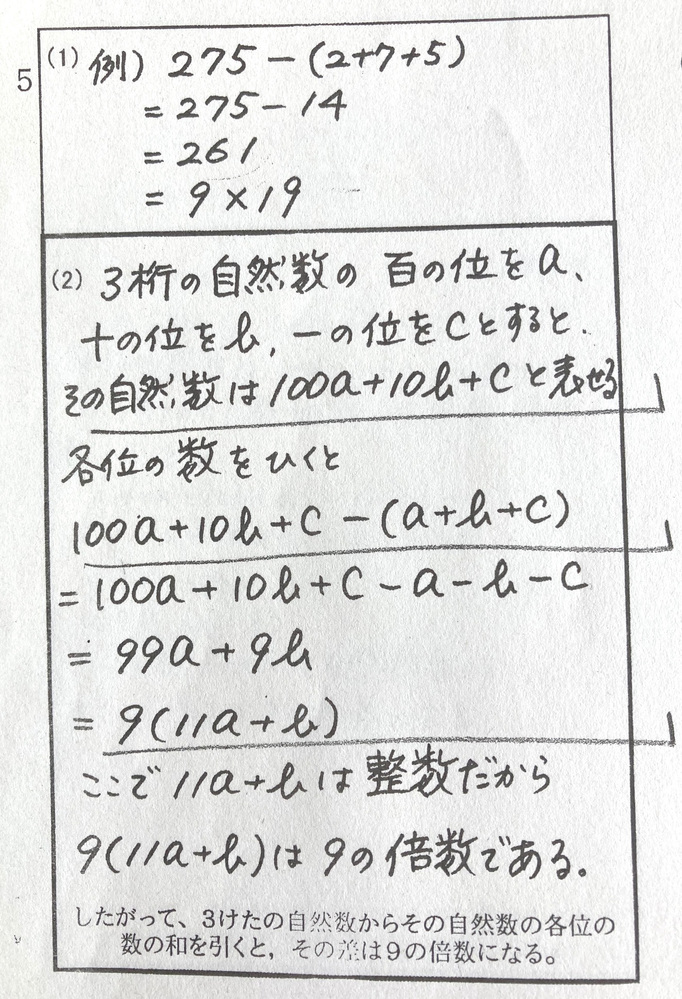 5
(1) 例) 275-(2+7+5)
= 275-14
= 261
= 9×19
(2) 3桁の自然数の 百の位をa、
十の位をb, 一の位をcとすると、
その自然数は100a+10b+cと表せる
各位の数をひくと
100a+10b+c-(a+b+c)
= 100a+10b+c-a-b-c
= 99a+9b
= 9(11a+b)
ここで11a+bは整数だから
9(11a+b)は9の倍数である。
したがって、3けたの自然数からその自然数の各位の
数の和を引くと,その差は9の倍数になる。